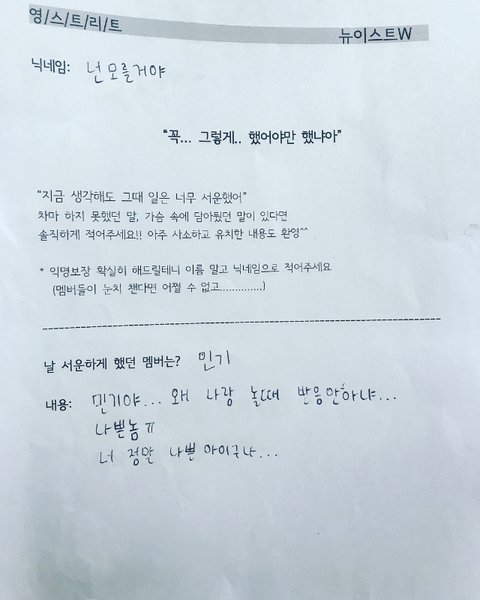 영/스/트/리/트
뉴이스트W
닉네임: 넌 모를거야
"꼭... 그렇게.. 했어야만 했냐아"
"지금 생각해도 그때 일은 너무 서운했어"
차마 하지 못했던 말, 가슴 속에 담아뒀던 말이 있다면
솔직하게 적어주세요!! 아주 사소하고 유치한 내용도 환영^^
* 익명보장 확실히 해드릴테니 이름 말고 닉네임으로 적어주세요
(멤버들이 눈치 챈다면 어쩔 수 없고.............)
날 서운하게 했던 멤버는? 민기
내용: 민기야... 왜 나랑 놀때 반응안하냐...
나쁜놈 ㅠ
너 정말 나쁜 아이구나...